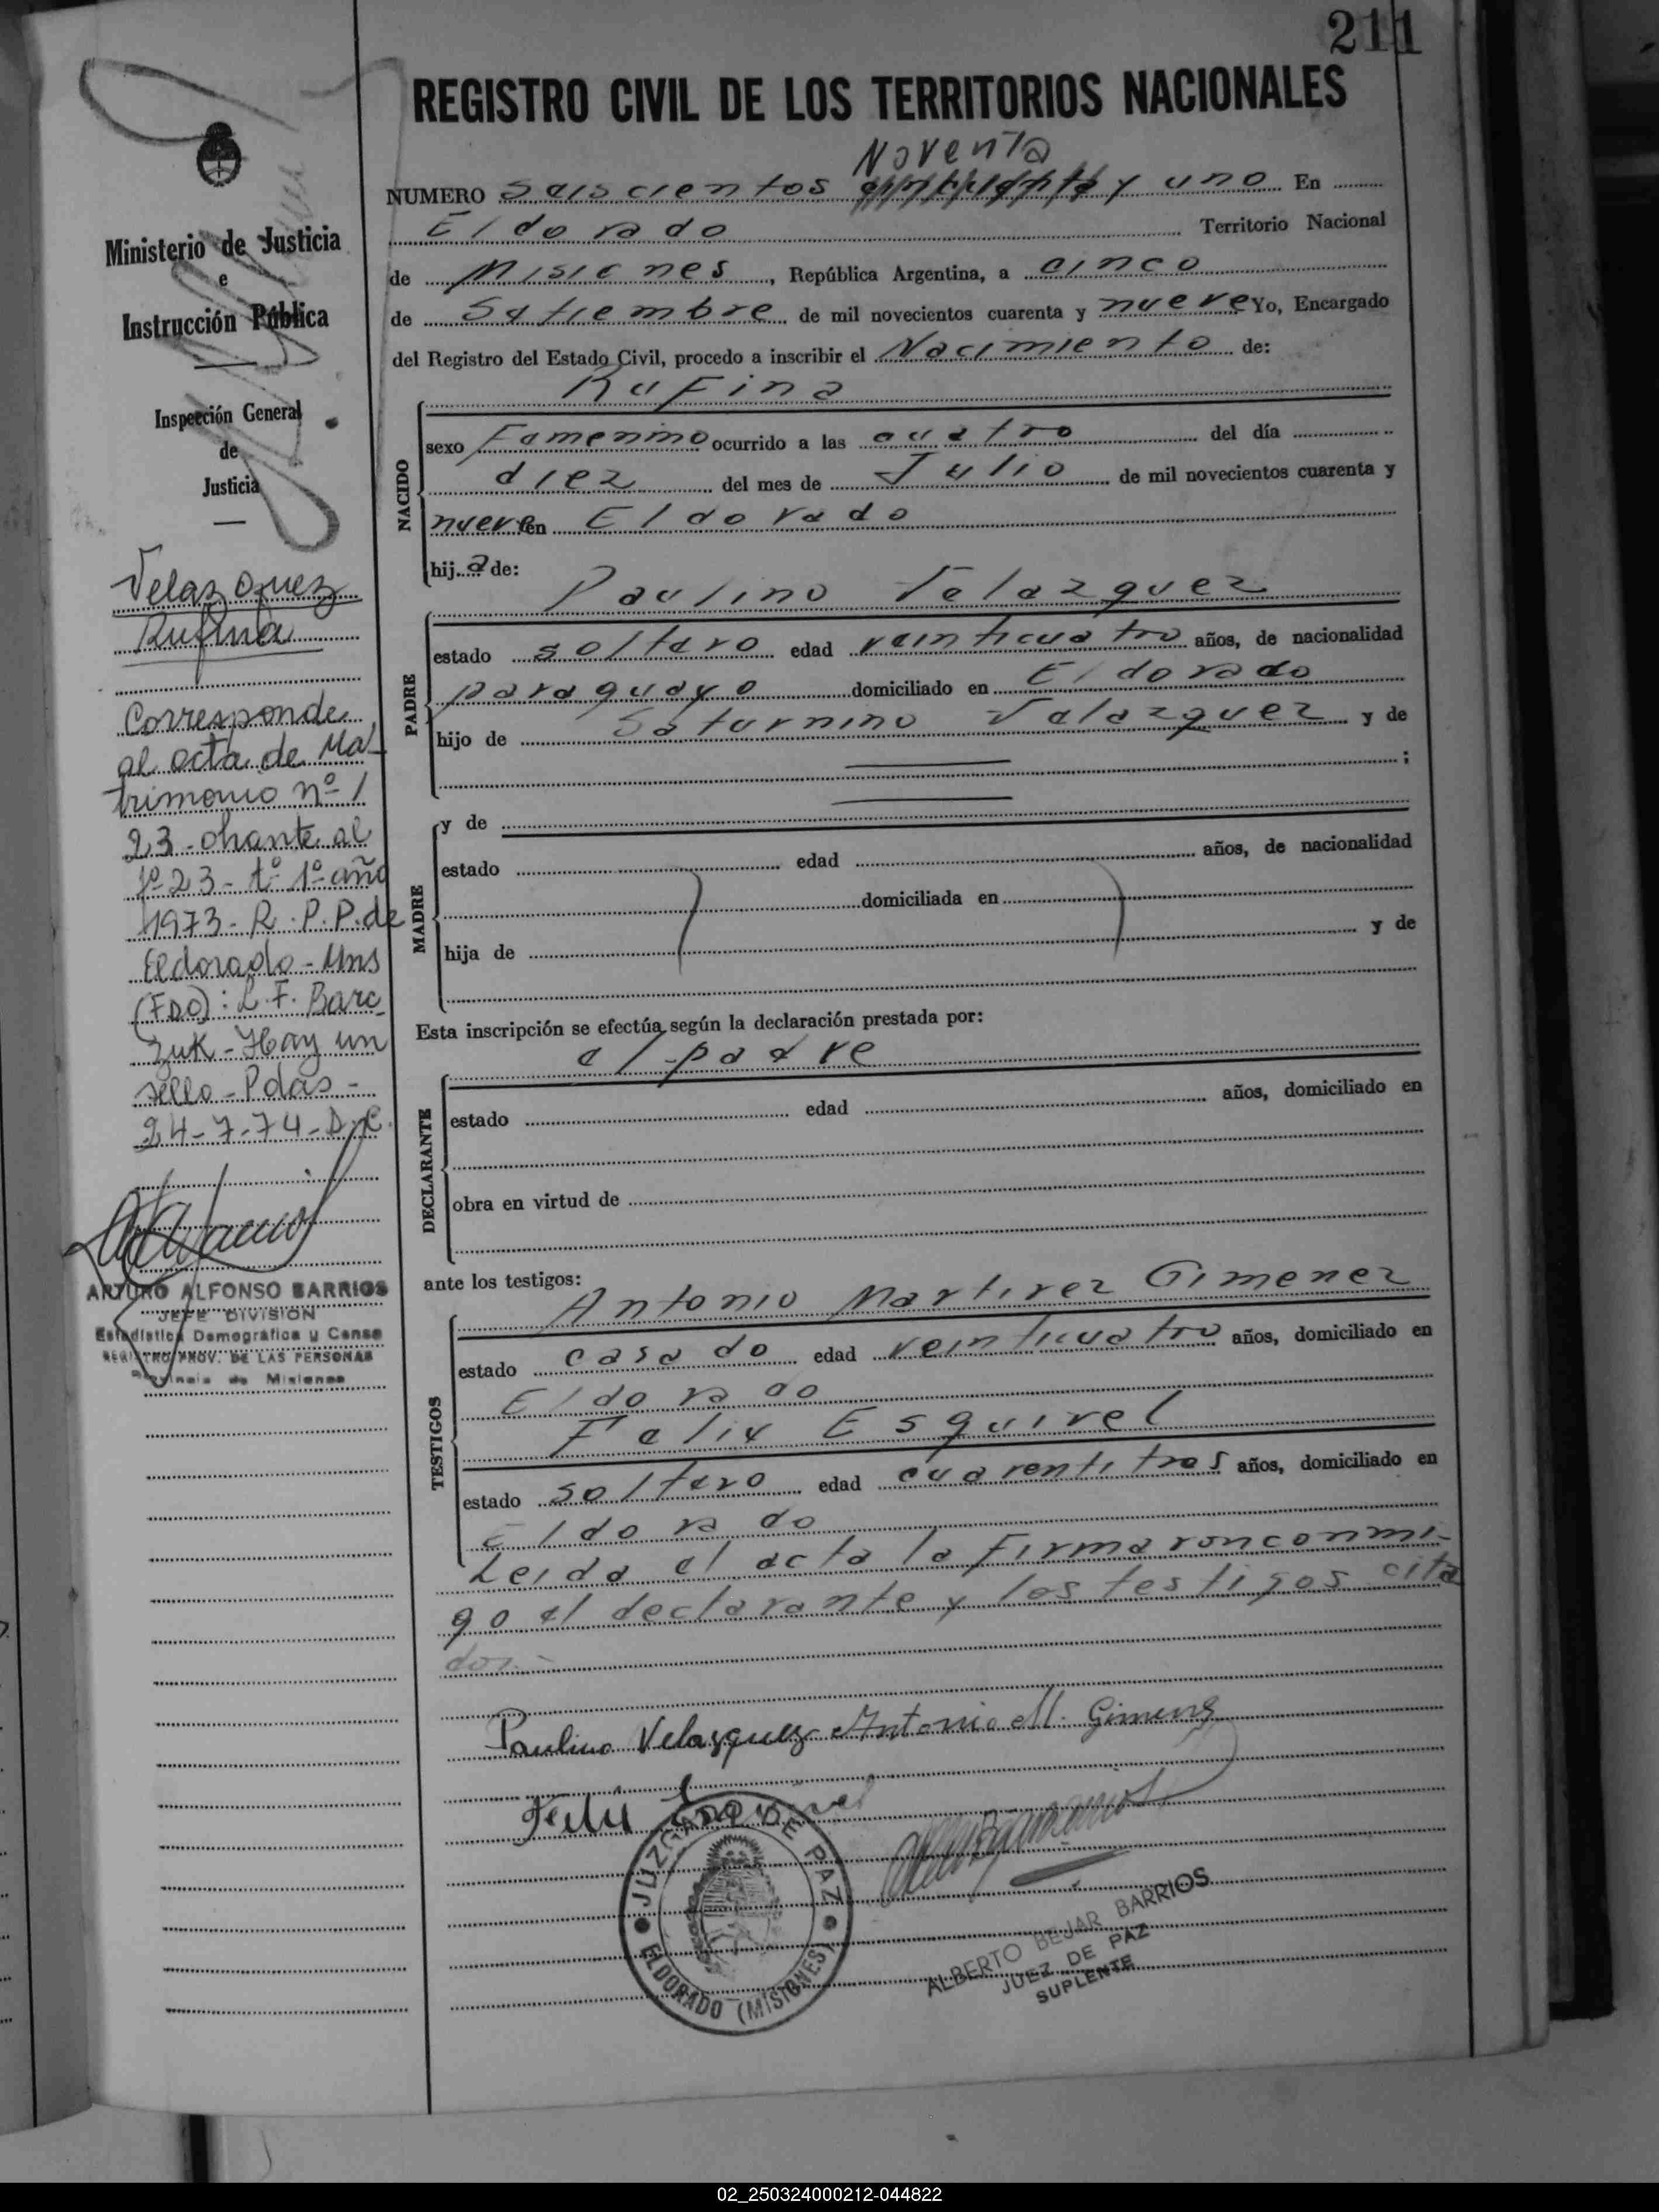 211
REGISTRO CIVIL DE LOS TERRITORIOS NACIONALES
Noventa
NUMERO Seiscientos y uno En
Eldorado Territorio Nacional
de Misiones, República Argentina, a cinco
de Setiembre de mil novecientos cuarenta y nueve Yo, Encargado
del Registro del Estado Civil, procedo a inscribir el Nacimiento de:
Rufina
NACIDO
sexo Femenino ocurrido a las cuatro del día
diez del mes de Julio de mil novecientos cuarenta y
nueve en Eldorado
hija de:
Paulino Velazquez
PADRE
estado soltero edad veinticuatro años, de nacionalidad
paraguayo domiciliado en Eldorado
hijo de Saturnino Velazquez y de
;
y de
MADRE
estado edad años, de nacionalidad
domiciliada en
hija de y de
Esta inscripción se efectúa según la declaración prestada por:
el padre
DECLARANTE
estado edad años, domiciliado en
obra en virtud de
ante los testigos:
Antonio Martirez Gimenez
TESTIGOS
estado casado edad veinticuatro años, domiciliado en
Eldorado
Felix Esquivel
estado soltero edad cuarentitres años, domiciliado en
Eldorado
Leida el acta la firmaron conmi-
go el declarante y los testigos cita
dos.-
Paulino Velazquez Antonio M. Gimenez
Felix Esquivel
JUZGADO DE PAZ
ELDORADO (MISIONES)
ALBERTO BEJAR BARRIOS
JUEZ DE PAZ
SUPLENTE
Ministerio de Justicia
e
Instrucción Pública
Inspección General
de
Justicia
Velazquez
Rufina
Corresponde
al acta de Ma-
trimonio nº 1
23 - obrante al
fº 23 - tº 1º año
1973 - R. P. P. de
Eldorado - Mns
(FDO): L. F. Barc
zuk - Hay un
sello - Pdas -
24-7-74 - D.C.
ARTURO ALFONSO BARRIOS
JEFE DIVISION
Estadistica Demografica y Censo
REGISTRO PROV. DE LAS PERSONAS
Provincia de Misiones
02_250324000212-044822